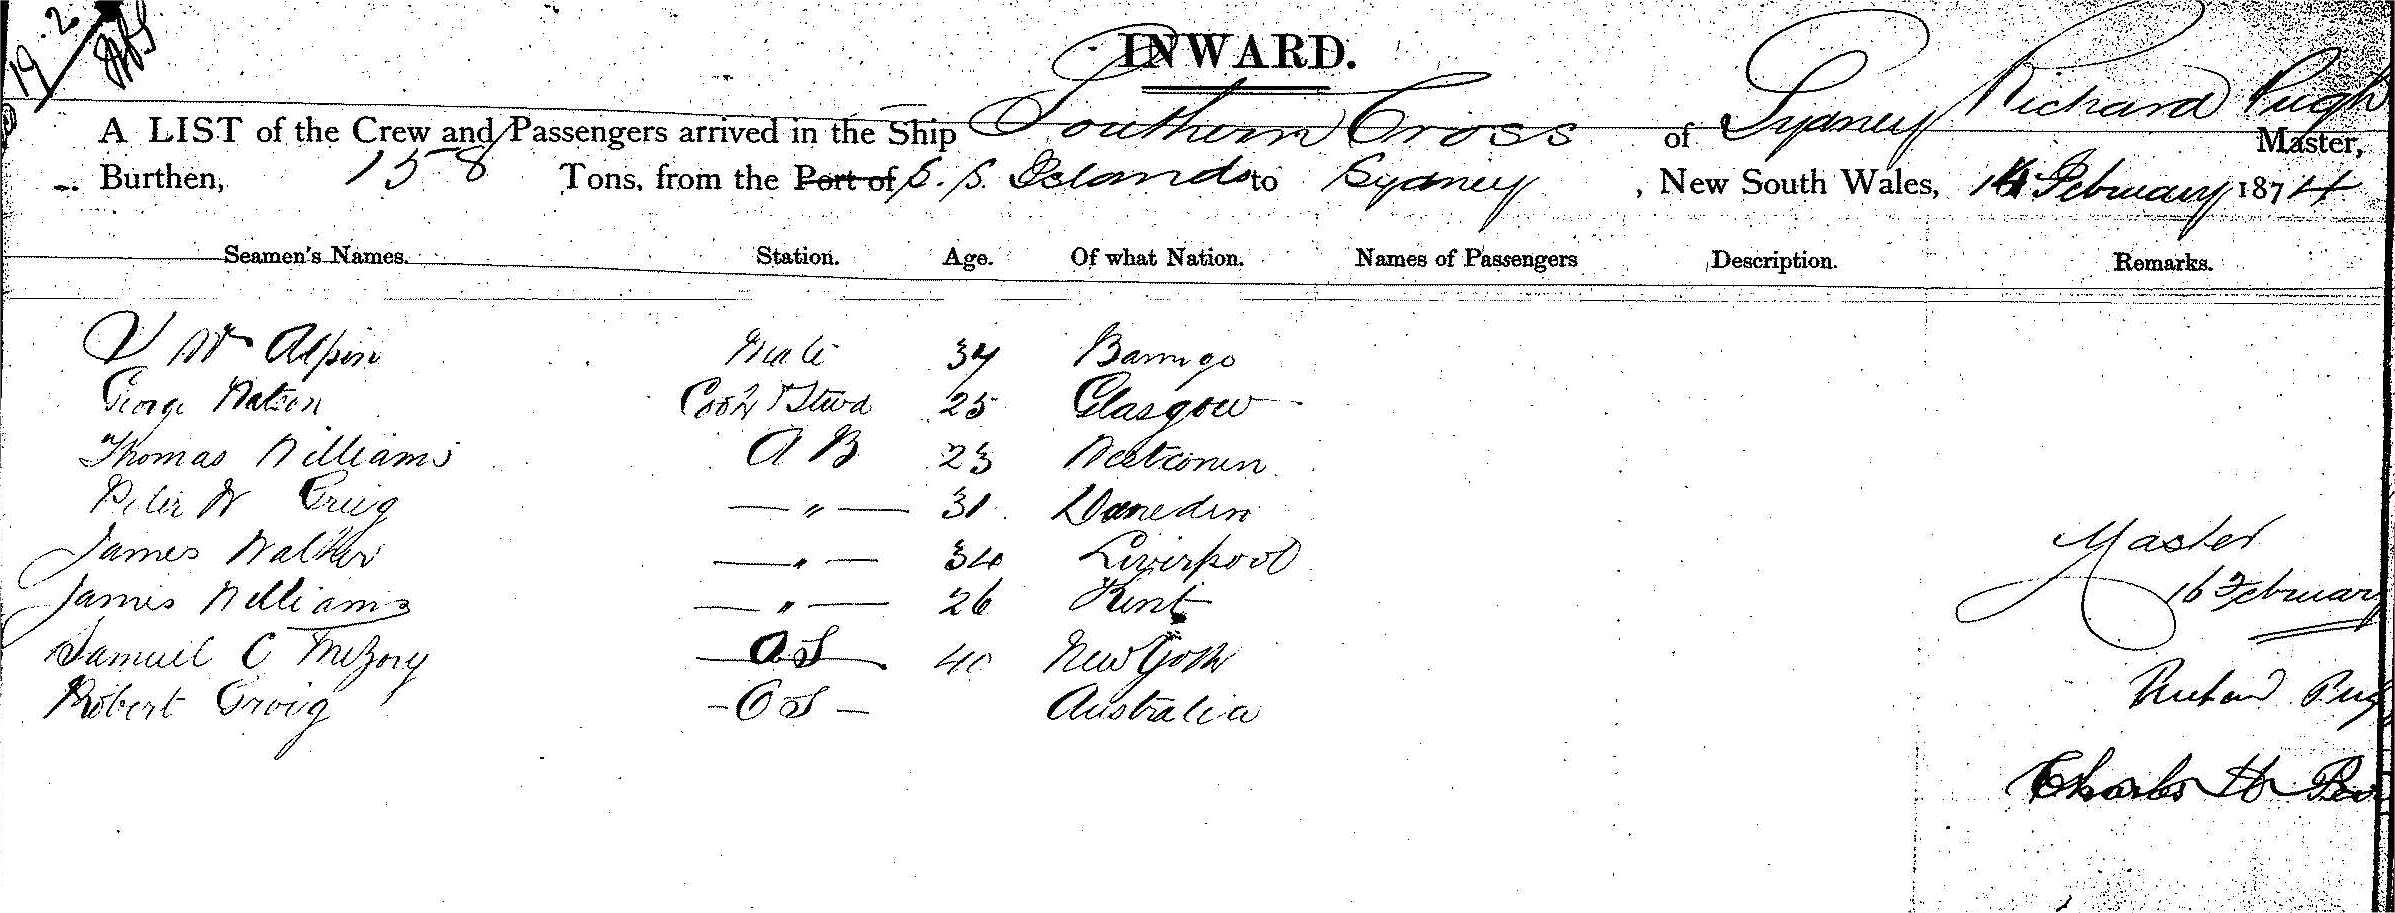 19.2
INWARD.
A LIST of the Crew and Passengers arrived in the Ship Southern Cross of Sydney Richard Pugh Master,
Burthen, 158 Tons, from the Port of S. S. Islands to Sydney, New South Wales, February 1874
Seamen's Names. Station. Age. Of what Nation. Names of Passengers Description. Remarks.
Alpin Mate
George Watson Cook & Stwd 25 Glasgow
Thomas Williams A B 23
Peter W Greig — " — 31 Dunedin
James Walker — " — 34 Liverpool
James Williams — " — 26 Kent
Samuel C O S 40 New York
Robert - O S - Australia
Master
16 February
Richard Pug
Charles H